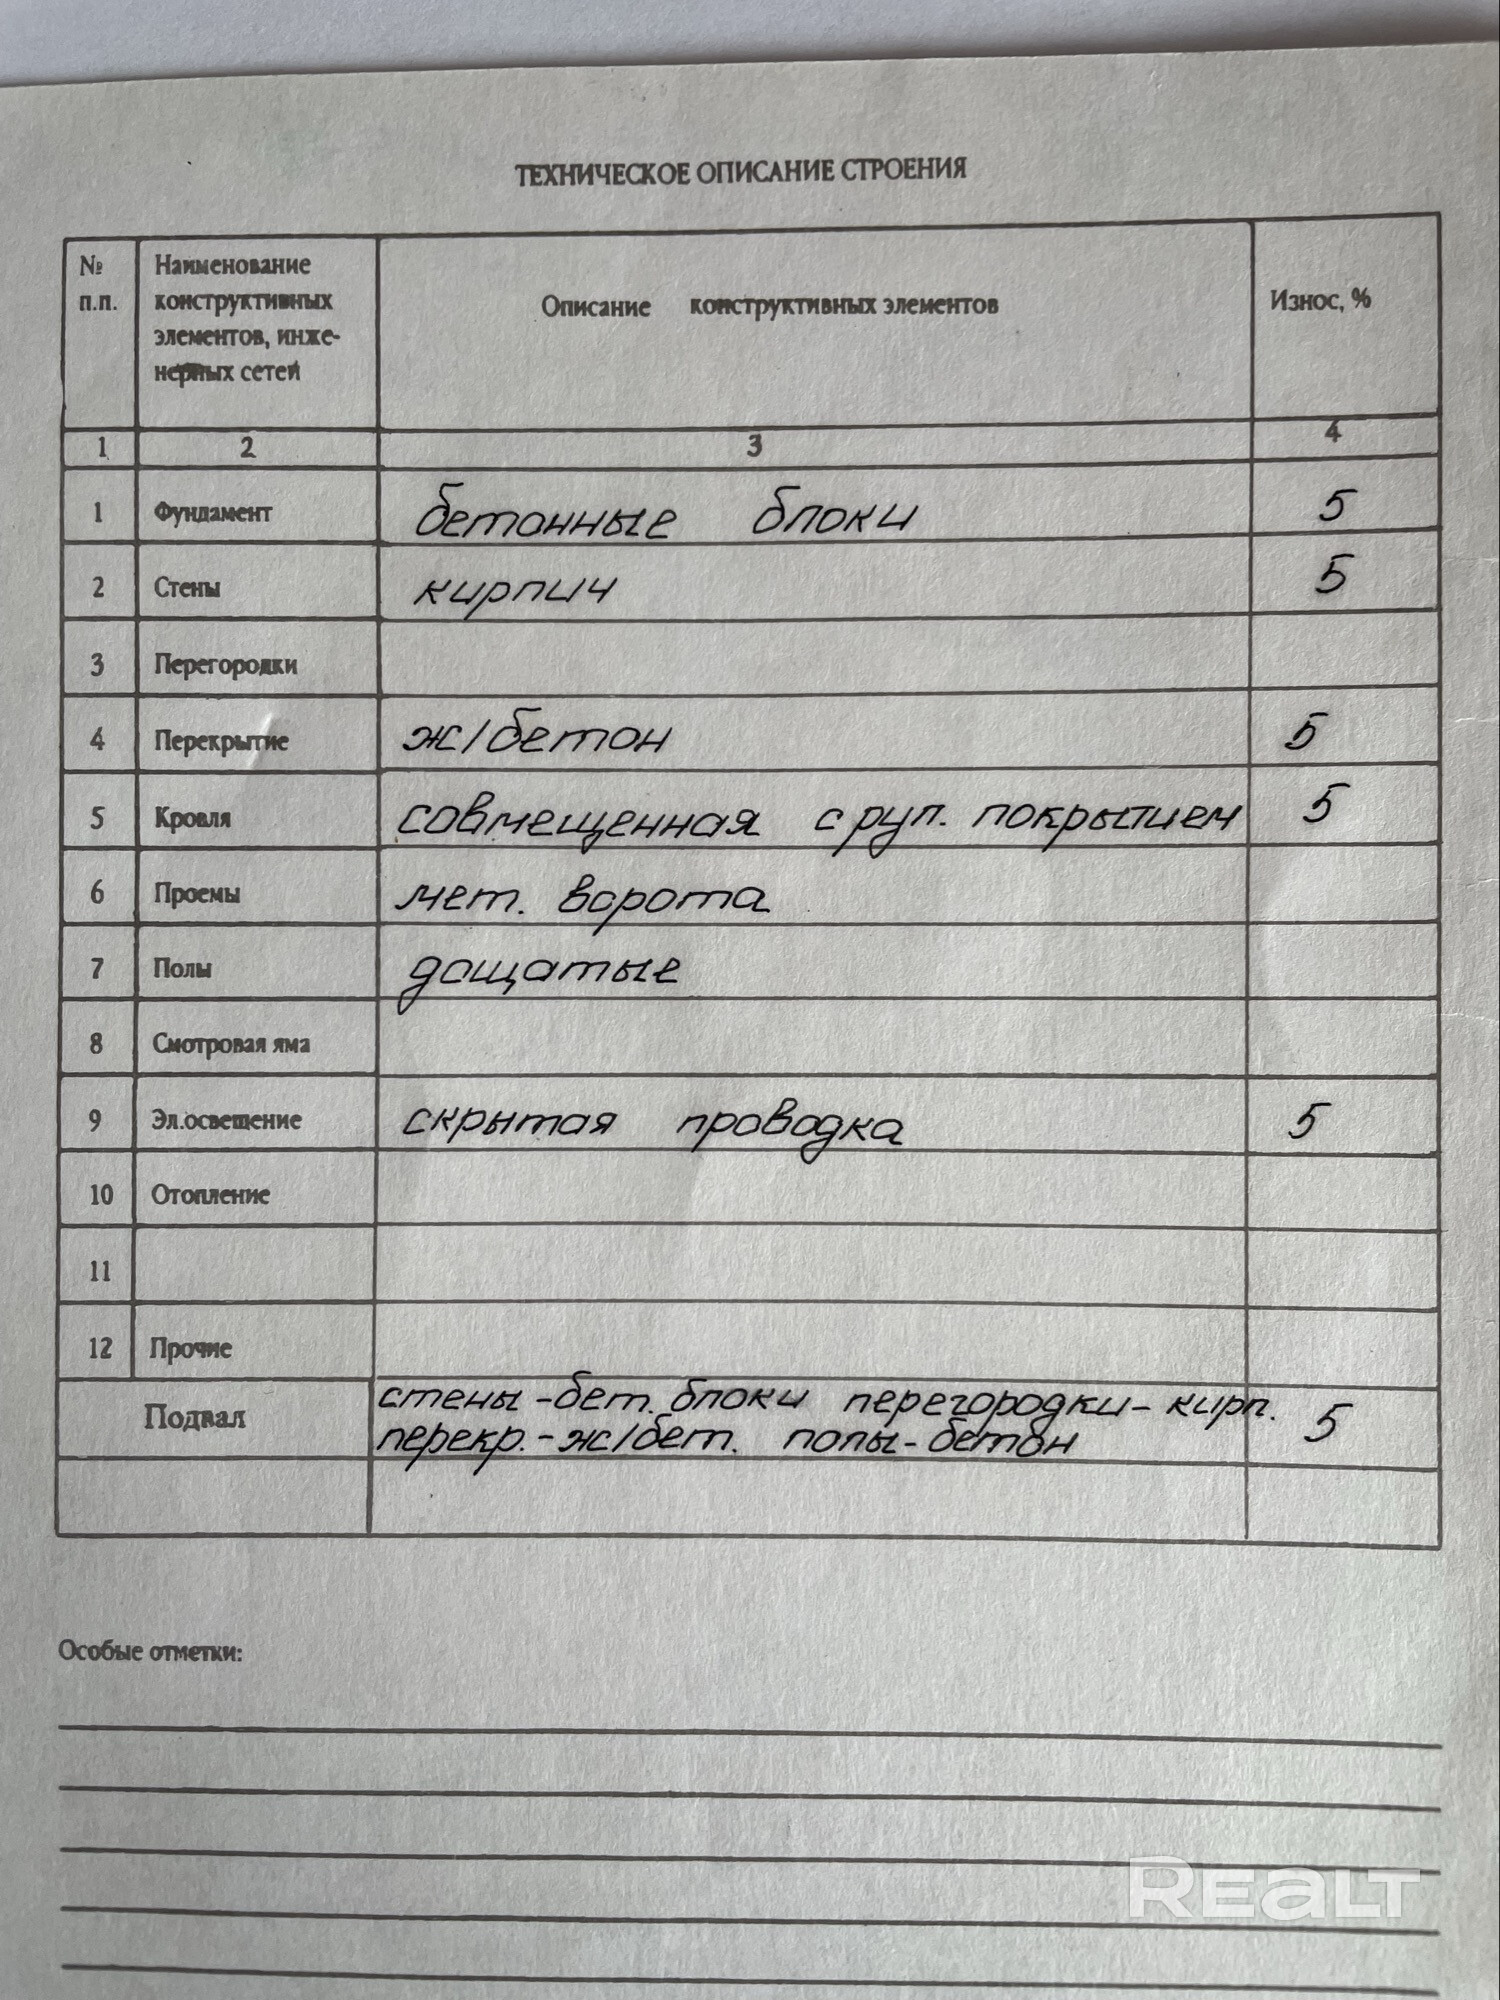 ТЕХНИЧЕСКОЕ ОПИСАНИЕ СТРОЕНИЯ
№ п.п.
Наименование
конструктивных
элементов, инже-
нерных сетей
Описание конструктивных элементов
Износ, %
1 2 3 4
1 Фундамент бетонные блоки 5
2 Стены кирпич 5
3 Перегородки
4 Перекрытие ж/бетон 5
5 Кровля совмещенная с рул. покрытием 5
6 Проемы мет. ворота
7 Полы дощатые
8 Смотровая яма
9 Эл.освещение скрытая проводка 5
10 Отопление
11
12 Прочие
Подвал стены - бет. блоки перегородки - кирп. 5
перекр. - ж/бет. полы - бетон
Особые отметки:
Realt